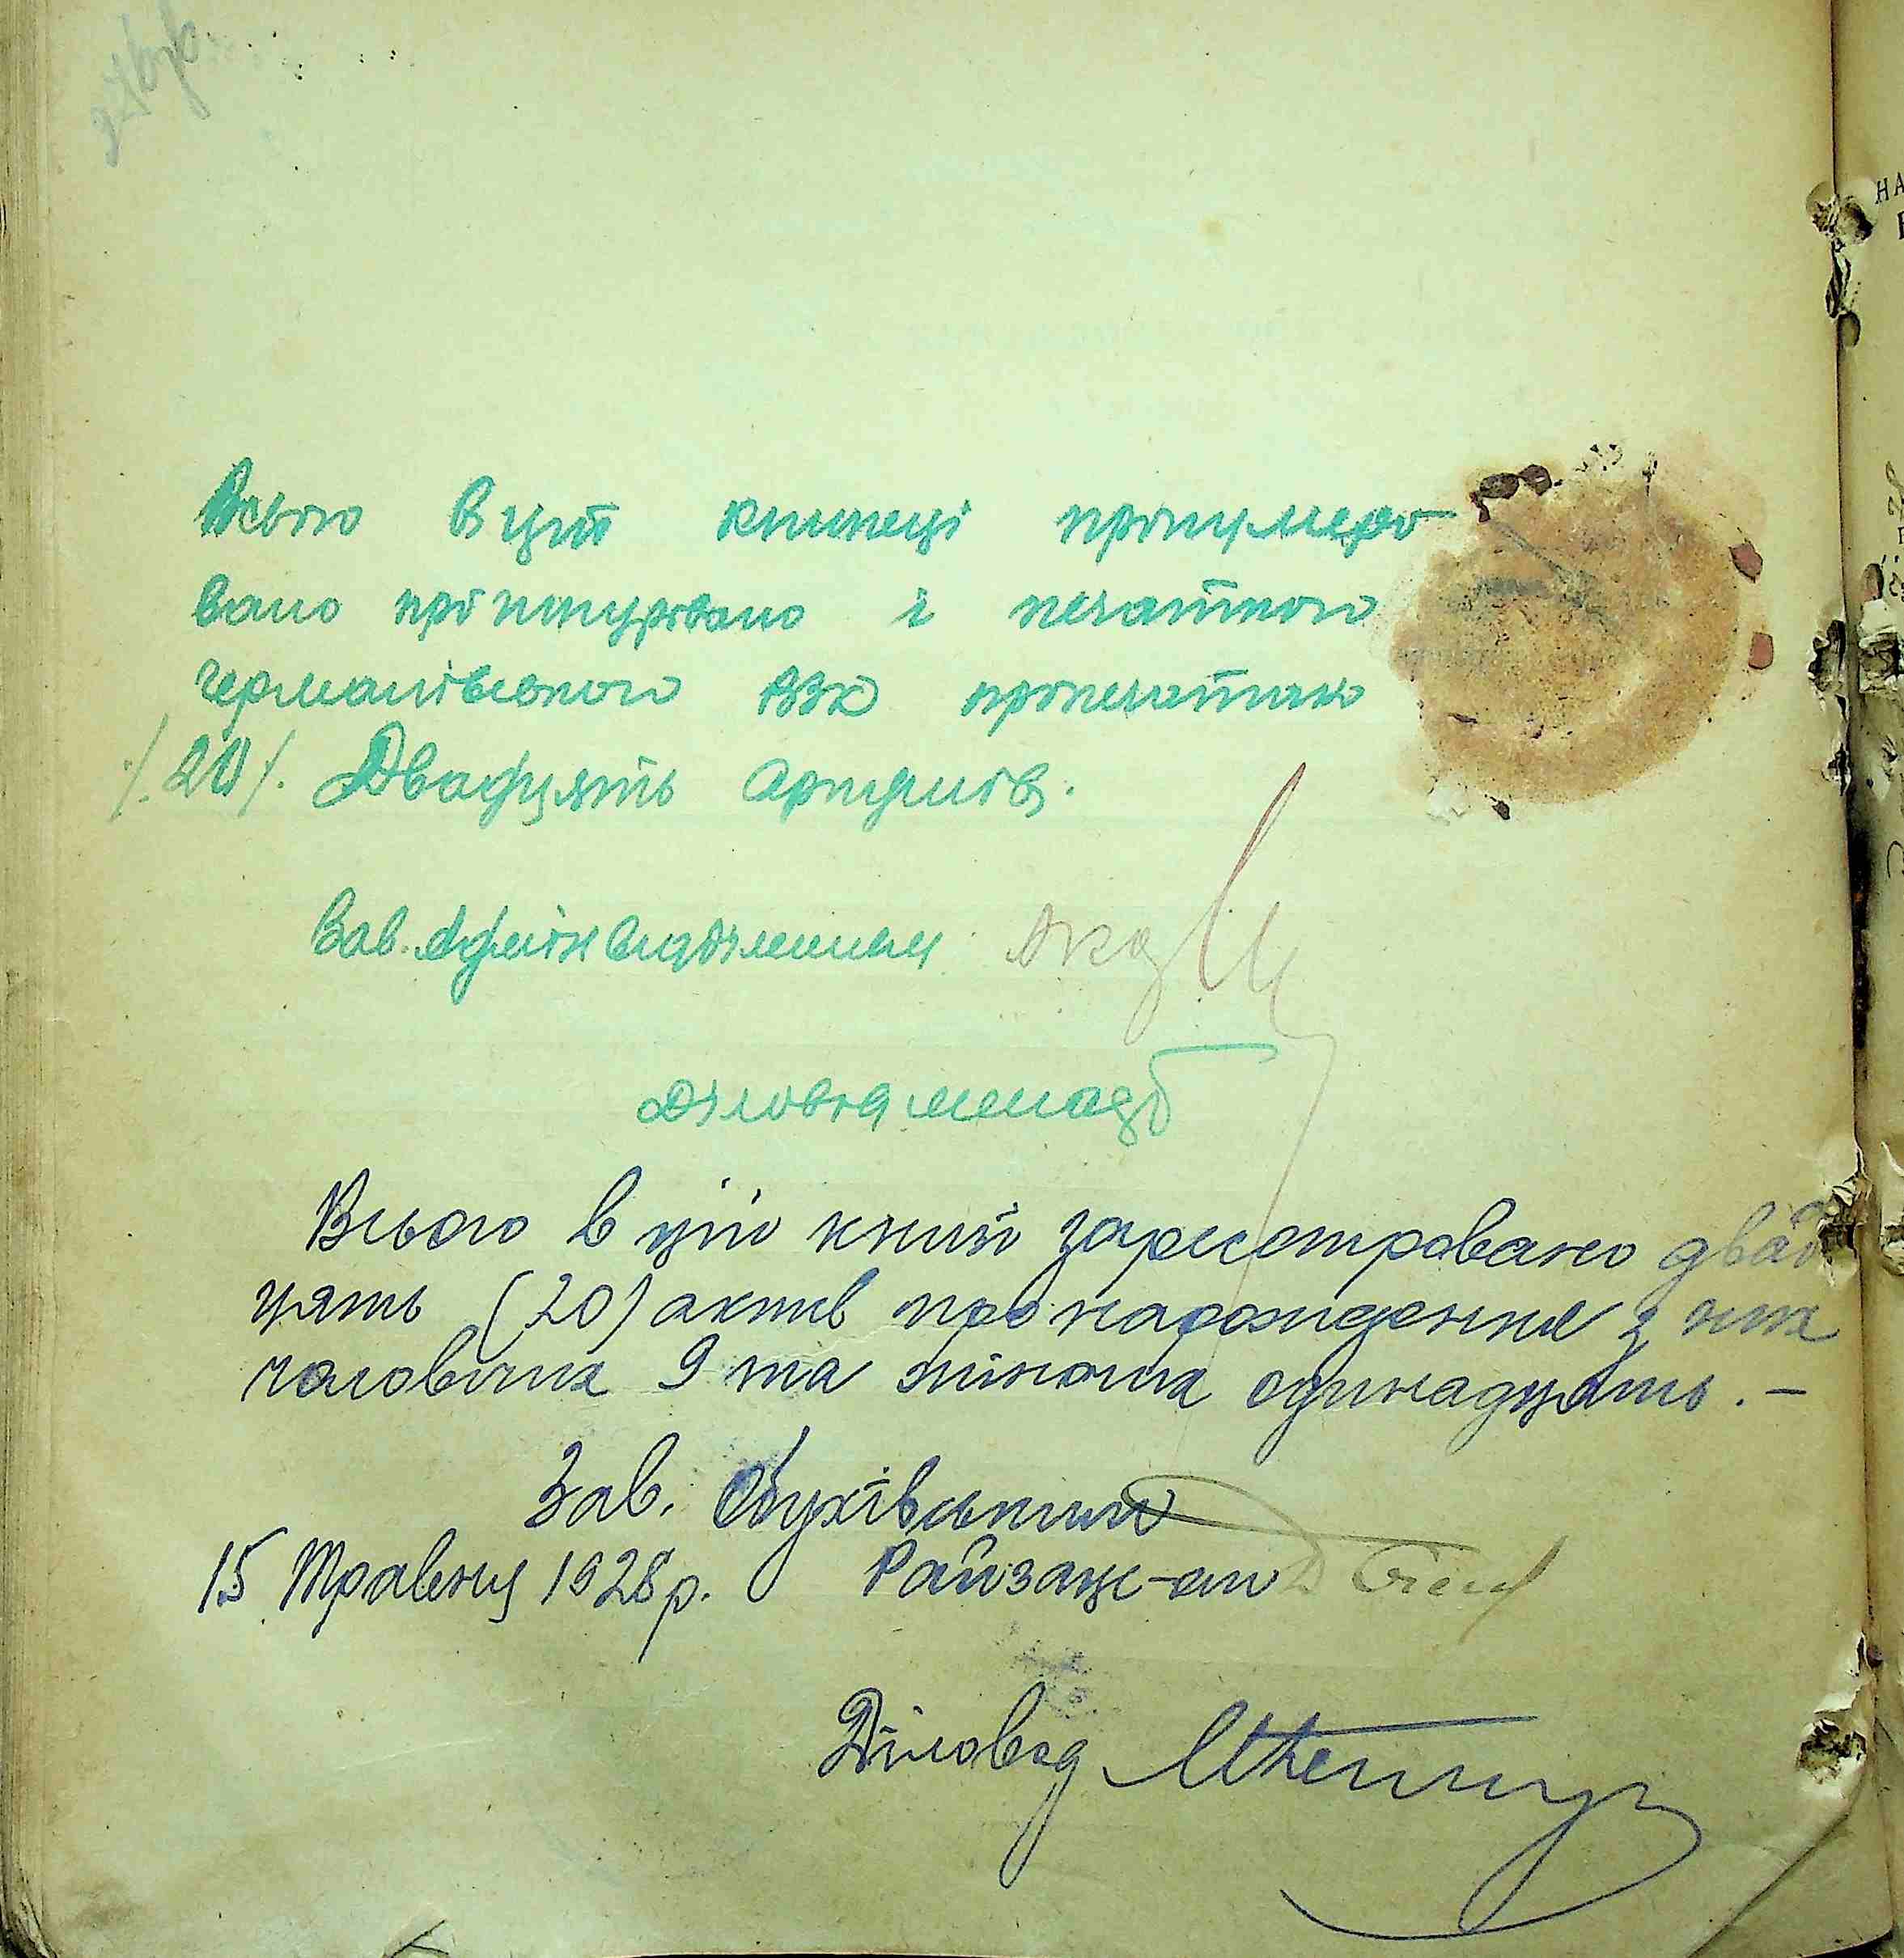 Всього в цій книжеці пронумеро
вано прошнуровано і печаткою
Германівського РВК пропечатано
/.20/. Двадцять аркушів.
Зав. Адмін відділення
Діловод
Всього в цій книзі зареєстровано двад
цять (20) актів про народження з них
чоловічих 9 та жіночих одинадцать. —
Зав. Обухівським
15 Травень 1928 р. Райзагс-ом
Діловод